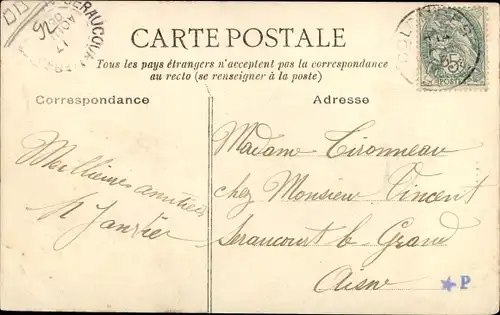 CARTE POSTALE
Tous les pays étrangers n'acceptent pas la correspondance
au recto (se renseigner à la poste)
Correspondance
Adresse
Meillieures amitiés
Janvier
Madame Cironneau
chez Monsieur Vincent
Seraucourt le Grand
Aisne
SERAUCOURT
AOUT
17
POSTE
P